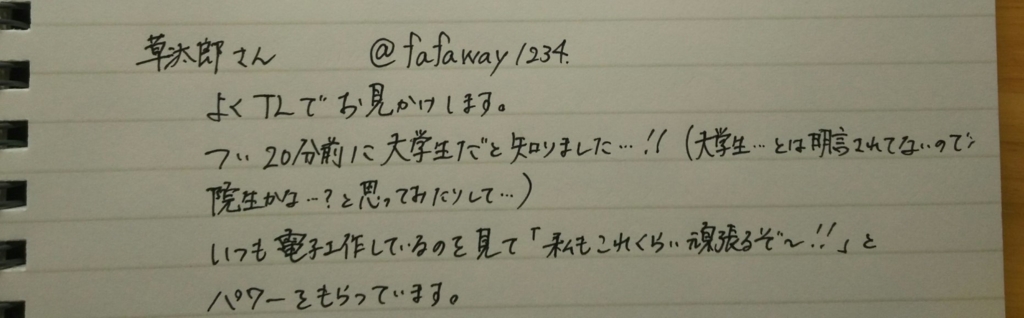 草汰郎さん @fafaway1234.
よくTLでお見かけします。
つい20分前に大学生だと知りました…!!(大学生…とは明言されてないので
院生かな…?と思ってみたりして…)
いつも電子工作しているのを見て「私もこれくらい頑張るぞ〜!!」と
パワーをもらっています。